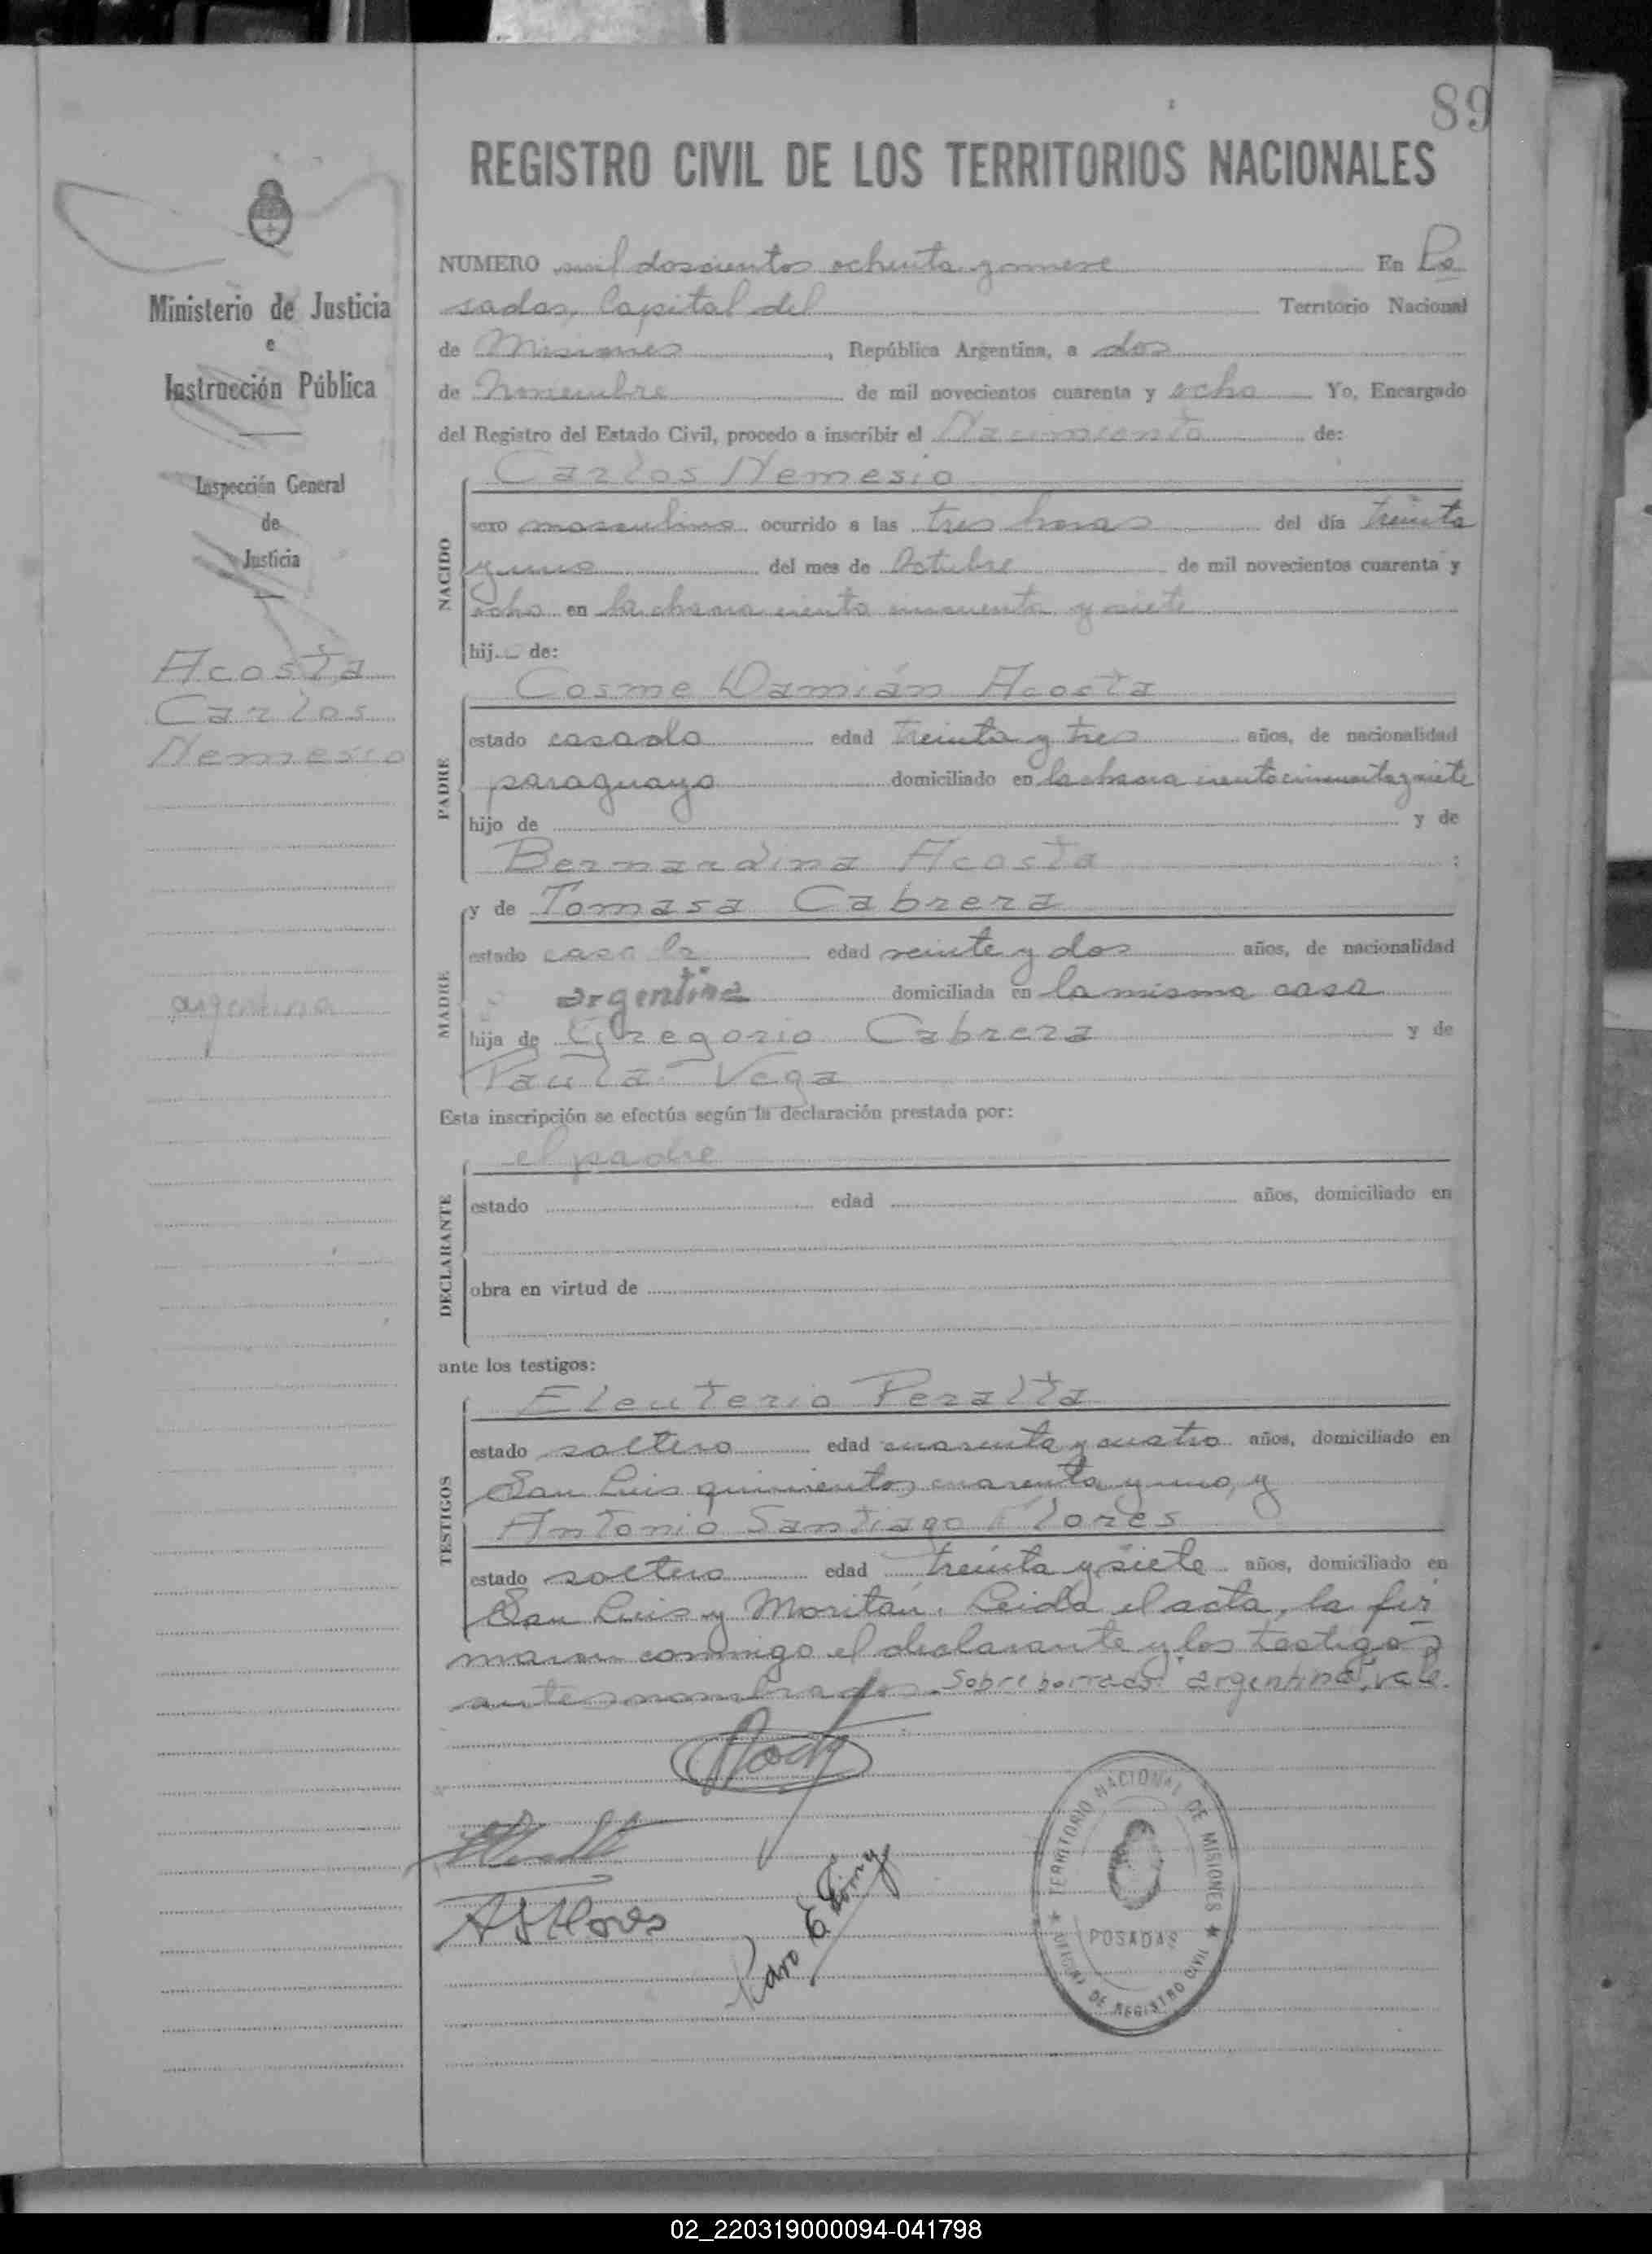 89
REGISTRO CIVIL DE LOS TERRITORIOS NACIONALES
Ministerio de Justicia
e
Instrucción Pública
Inspección General
de
Justicia
Acosta
Carlos
Nemesio
argentina
NUMERO mil doscientos ochenta y nueve En Po
sadas, Capital del Territorio Nacional
de Misiones, República Argentina, a dos
de Noviembre de mil novecientos cuarenta y ocho Yo, Encargado
del Registro del Estado Civil, procedo a inscribir el Nacimiento de:
Carlos Nemesio
NACIDO
sexo masculino ocurrido a las tres horas del día treinta
y uno del mes de Octubre de mil novecientos cuarenta y
ocho en la chacra ciento cincuenta y siete
hij de:
Cosme Damián Acosta
PADRE
estado casado edad treinta y tres años, de nacionalidad
paraguayo domiciliado en la chacra ciento cincuenta y siete
hijo de y de
Bernardina Acosta ;
y de Tomasa Cabrera
MADRE
estado casada edad veinte y dos años, de nacionalidad
argentina domiciliada en la misma casa
hija de Gregorio Cabrera y de
Paula Vega
Esta inscripción se efectúa según la declaración prestada por:
el padre
DECLARANTE
estado edad años, domiciliado en
obra en virtud de
ante los testigos:
Eleuterio Peralta
TESTIGOS
estado soltero edad cuarenta y cuatro años, domiciliado en
San Luis quinientos cuarenta y uno, y
Antonio Santiago Flores
estado soltero edad treinta y siete años, domiciliado en
San Luis y Moritán. Leida el acta, la fir
maron conmigo el declarante y los testigos
antes nombrados. Sobre borrado: "argentina", vale.
A S Flores
TERRITORIO NACIONAL DE MISIONES
POSADAS
OFICINA DE REGISTRO CIVIL
02_220319000094-041798